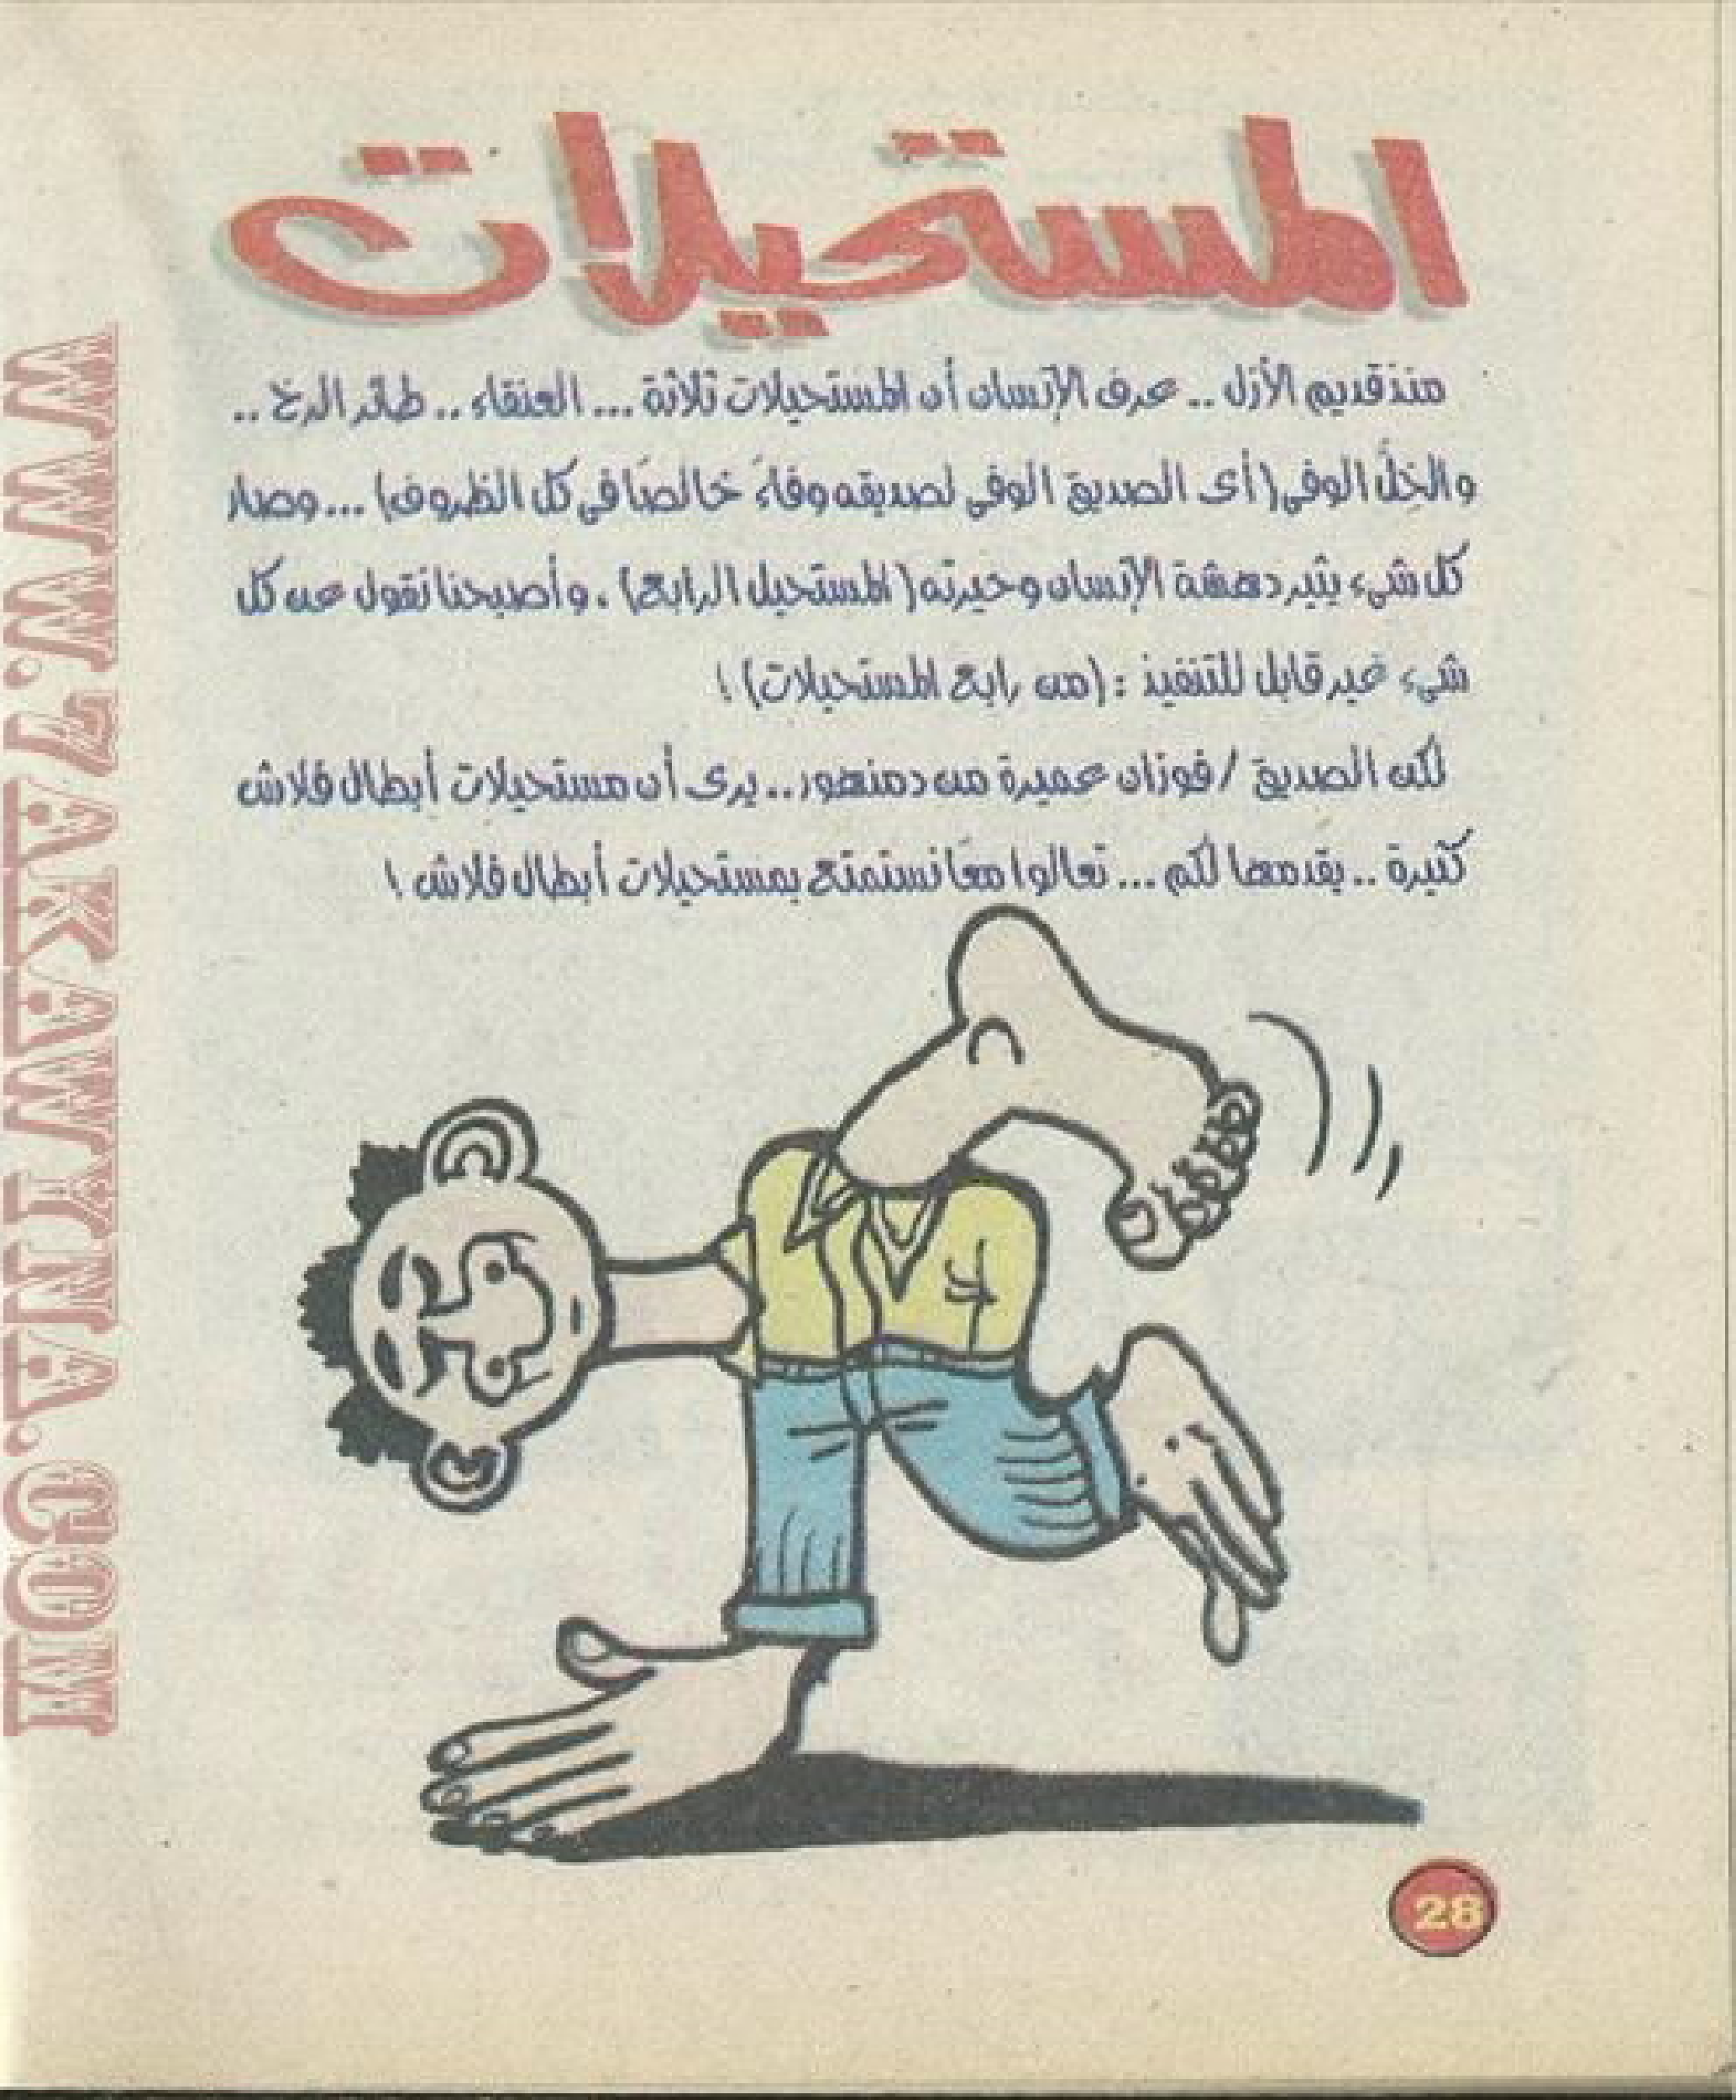 المستحيلات
منذ قديم الأزل .. عرف الإنسان أن المستحيلات ثلاثة ... العنقاء .. طائر الرخ ..
والخِلُّ الوفى (أى الصديق الوفى لصديقه وفاءً خالصًا فى كل الظروف) ... وصار
كل شىء يثير دهشة الإنسان وحيرته (المستحيل الرابع) . وأصبحنا نقول عن كل
شىء غير قابل للتنفيذ : (من رابع المستحيلات) !
لكن الصديق / فوزان عميرة من دمنهور .. يرى أن مستحيلات أبطال فلاش
كثيرة .. يقدمها لكم ... تعالوا معًا نستمتع بمستحيلات أبطال فلاش !
28
WWW.7AKAWITNA.COM